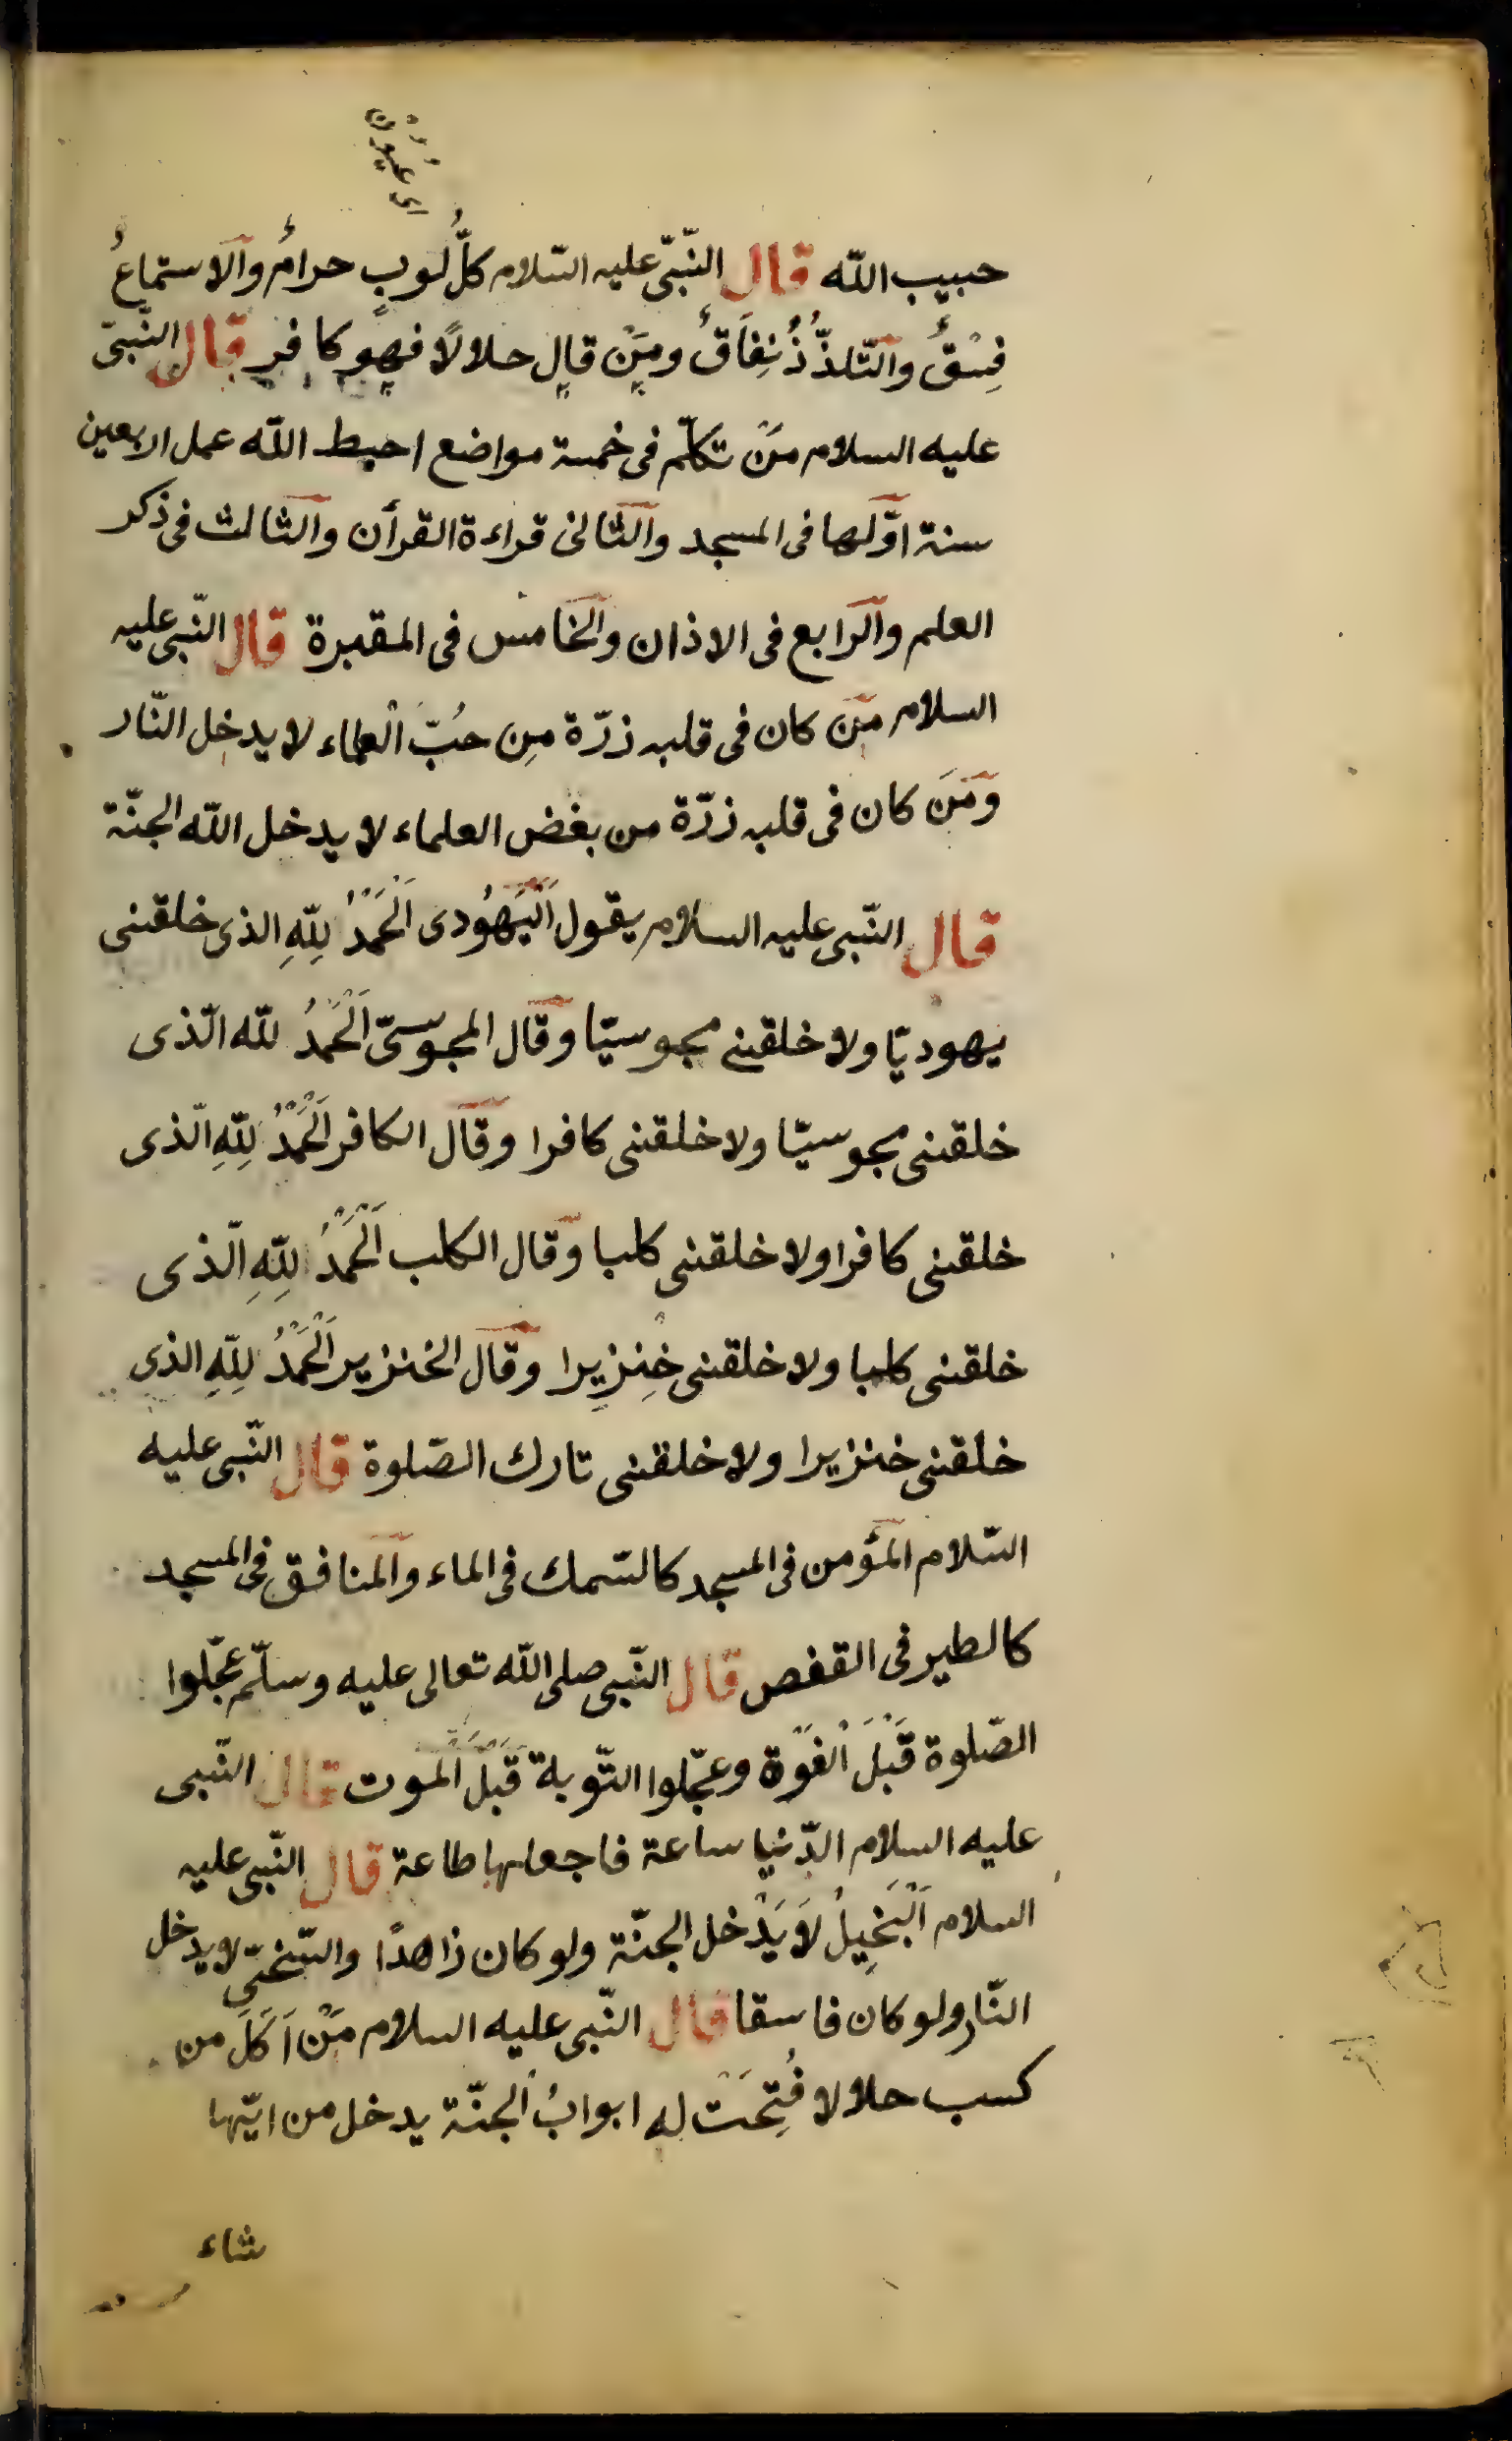 حبيب الله قال النّبىّ عليه السّلام كلُّ لوب حرامٌ والاستماعُ
فِسْقٌ والتّلذّذُ نِفاقٌ ومَنْ قال حلالًا فهو كافر قال النّبىّ
عليه السلام مَنْ تكلّم فى خمسة مواضع احبط الله عمل اربعين
سنة اوّلها فى المسجد والثّانى قراءة القرأن والثّالث فى ذكر
العلم والرّابع فى الاذان والخامس فى المقبرة قال النّبى عليه
السلام مَن كان فى قلبه ذرّة مِن حُبّ العلماء لا يدخل النّار
ومَن كان فى قلبه ذرّة من بغض العلماء لا يدخل الله الجنّة
قال النّبى عليه السلام يقول اَلْيَهُودى اَلْحَمْدُ لِلّهِ الذى خلقنى
يهوديّا ولا خلقنى مجوسيّا وقال المجوسىّ اَلْحَمْدُ للّه الّذى
خلقنى مجوسيّا ولا خلقنى كافرا وقال الكافر اَلْحَمْدُ لِلّهِ الّذى
خلقنى كافرا ولا خلقنى كلبا وقال الكلب اَلْحَمْدُ لِلّهِ الّذى
خلقنى كلبا ولا خلقنى خِنزِيرا وقال الخنزير اَلْحَمْدُ لِلّهِ الذى
خلقنى خنزيرا ولا خلقنى تارك الصّلوة قال النّبى عليه
السّلام المؤمن فى المسجد كالسّمك فى الماء والمنافق فى المسجد
كالطير فى القفص قال النّبى صلى الله تعالى عليه وسلّم عجّلوا
الصّلوة قَبْلَ الْفَوْة وعجّلوا التّوبة قَبْلَ الْمَوت قال النّبى
عليه السلام الدّنيا ساعة فاجعلها طاعة قال النّبى عليه
السلام اَلْبَخِيلُ لَا يَدْخل الجنّة ولو كان زاهدًا والسّخىّ لا يدخل
النّار ولو كان فاسقا قال النّبى عليه السلام مَنْ اَكَلَ من
كسب حلالا فُتِحَتْ له ابوابُ الجنّة يدخل من ايّها
شاء